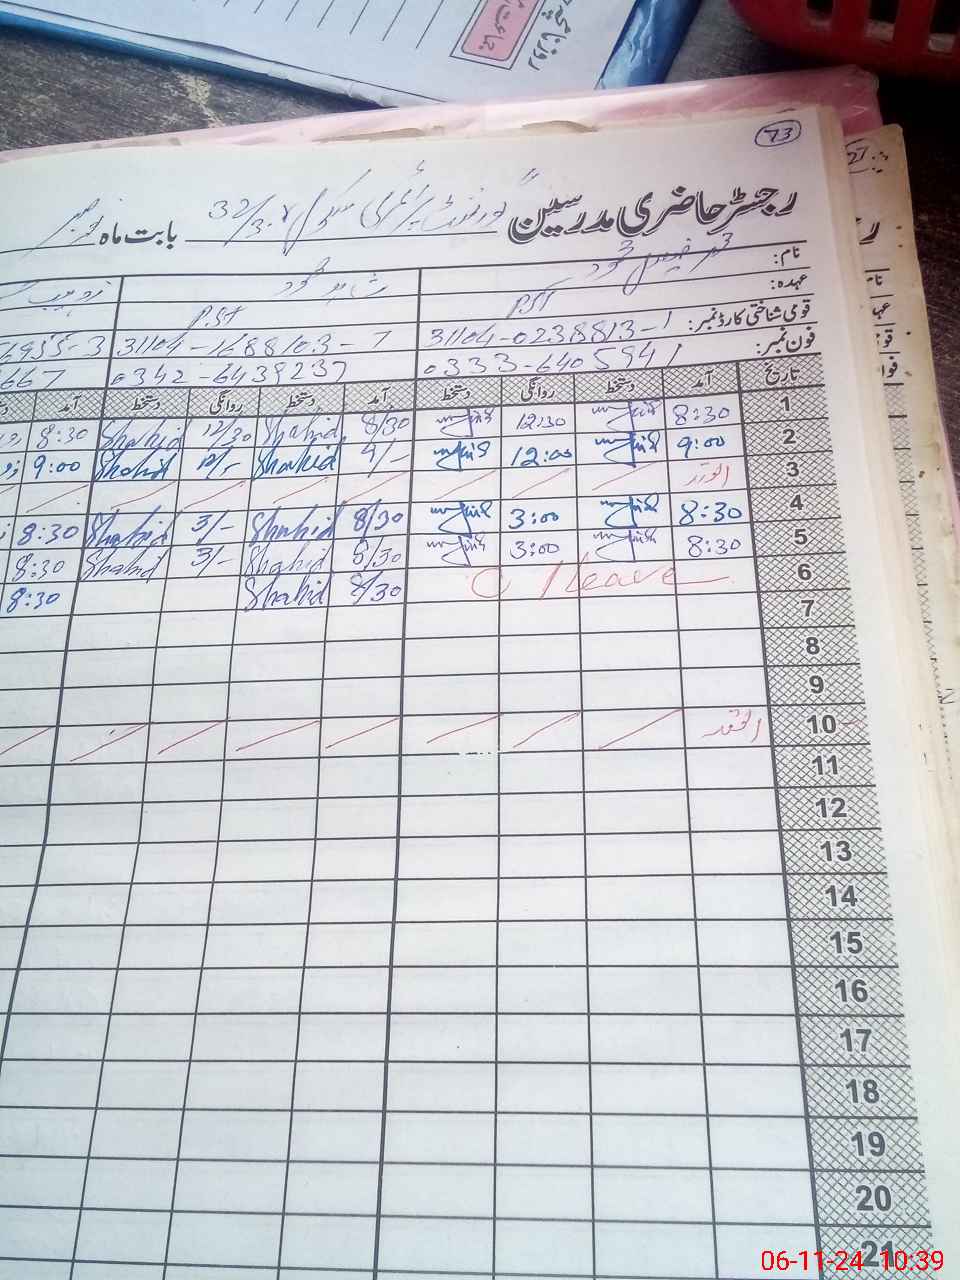 روزنامچہ
جماعت
73
27
رجسٹر حاضری مدرسین گورنمنٹ پرائمری سکول 32/3.R بابت ماہ نومبر
نام: محمود شاہد محمود زوہیب
عہدہ: PST PST
قومی شناختی کارڈ نمبر: 31104-0238813-1 31104-1688103-7 6955-3
فون نمبر: 0333-6405941 0342-6439237 667
تاریخ آمد دستخط روانگی دستخط آمد دستخط روانگی دستخط آمد
1 8:30 12:30 8/30 Shahid 12/30 Shahid 8:30
2 9:00 12:00 9/- Shahid 12/- Shahid 9:00
3 اتوار / / / / / / / /
4 8:30 3:00 8/30 Shahid 3/- Shahid 8:30
5 8:30 3:00 8/30 Shahid 3/- Shahid 8:30
6 C/leave 8/30 Shahid 8:30
7
8
9
10 اتوار / / / / / / / /
11
12
13
14
15
16
17
18
19
20
21
06-11-24 10:39